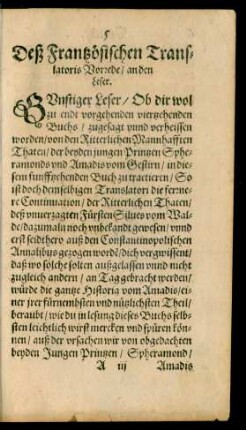 5
Deß Frantzösischen Trans-
latoris Vorrede / an den
Leser.
GVnstiger Leser / Ob dir wol
zu endt vorgehenden viertzehenden
Buchs / zugesagt vnnd verheissen
worden / von den Ritterlichen Mannhafften
Thaten / der beyden jungen Printzen Sphe-
ramonds vnd Amadis vom Gestirn / in die-
sem funfftzehenden Buch zu tractieren / So
ist doch demselbigen Translatori die ferrne-
re Continuation / der Ritterlichen Thaten /
deß vnuerzagten Fürsten Silues vom Wal-
de / dazumaln noch vnbekandt gewesen / vnnd
erst seidthero auß den Constantinopolischen
Annalibus gezogen worden / dich vergwissent /
daß wo solche solten außgelassen vnnd nicht
zugleich andern / an Tag gebracht werden /
würde die gantze Historia vom Amadis / ei-
ner jrer fürnembsten vnd nützlichsten Theil /
beraubt / wie du in lesung dieses Buchs selb-
sten leichtlich wirst mercken vnd spüren kön-
nen / auß der vrsachen wir von obgedachten
beyden Jungen Printzen / Spheramond /
A iij Amadis